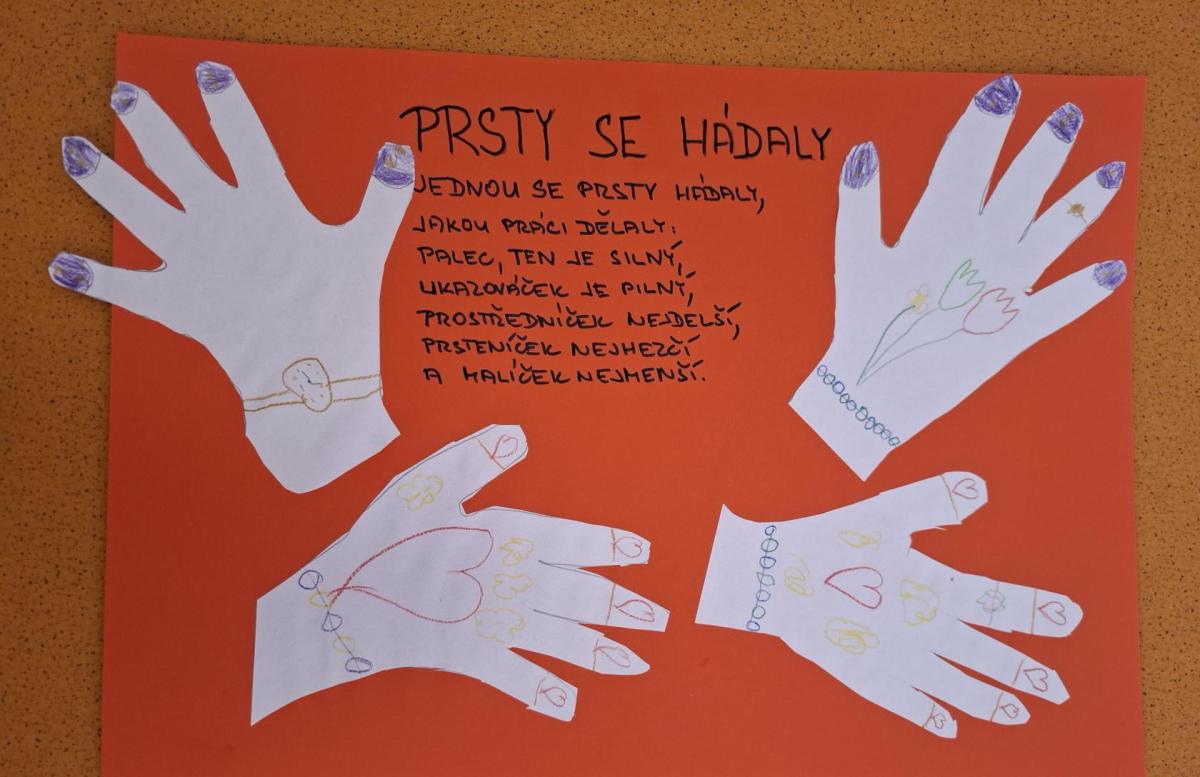 PRSTY SE HÁDALY
JEDNOU SE PRSTY HÁDALY,
JAKOU PRÁCI DĚLALY:
PALEC, TEN JE SILNÝ,
UKAZOVÁČEK JE PILNÝ,
PROSTŘEDNÍČEK NEJDELŠÍ,
PRSTENÍČEK NEJHEZČÍ
A MALÍČEK NEJMENŠÍ.